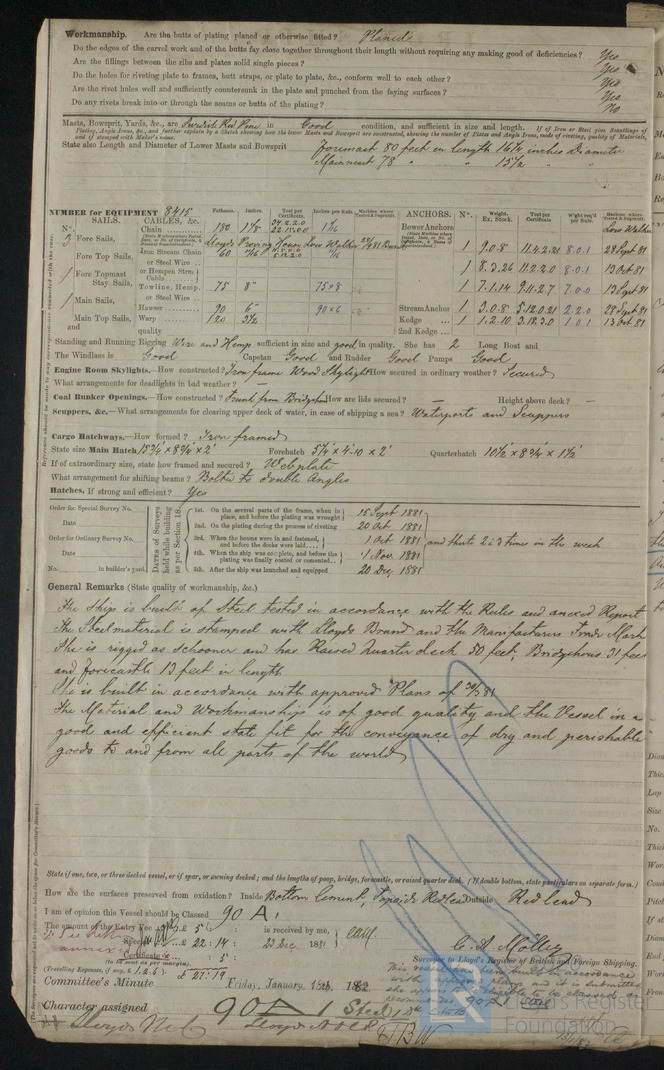 Workmanship. Are the butts of plating planed or otherwise fitted? Planed
Do the edges of the carvel work and of the butts fay close together throughout their length without requiring any making good of deficiencies? Yes
Are the fillings between the ribs and plates solid single pieces? Yes
Do the holes for riveting plate to frames, butt straps, or plate to plate, &c., conform well to each other? Yes
Are the rivet holes well and sufficiently countersunk in the plate and punched from the faying surfaces? Yes
Do any rivets break into or through the seams or butts of the plating? No
Masts, Bowsprit, Yards, &c., are Swedish Red Pine in Good condition, and sufficient in size and length. If of Iron or Steel give Scantlings of
Plating, Angle Irons, &c., and further explain by a Sketch showing how the lower Masts and Bowsprit are constructed, showing the number of Plates and Angle Irons, mode of riveting, quality of Materials,
and if stamped with Maker's name.
State also Length and Diameter of Lower Masts and Bowsprit Foremast 80 feet in length 16½ inches Diameter
Mainmast 78 " " 15½ "
NUMBER for EQUIPMENT 8415
SAILS. CABLES, &c. Fathoms. Inches. Test per Certificate. Inches per Rule. ANCHORS. Nº. Weight. Ex. Stock. Test per Certificate W'ght req'd per Rule.
Nº.
Chain 180 1⅛
3 Fore Sails,
Bower Anchors 1 9.0.8 11.4.2.21 8.0.1 28 Sept 81
Fore Top Sails, Iron Stream Chain 60
or Steel Wire
or Hempen Strm Cable
1 8.3.26 11.2.2.0 8.0.1 13 Oct 81
1 Fore Topmast Stay Sails, Towline, Hemp. 75 8" 75 x 8
1 7.1.14 9.11.2.7 7.0.0 13 Sept 81
or Steel Wire
1 Main Sails, Hawser 90 6" 90 x 6
Stream Anchor 1 3.0.8 5.12.0.21 2.2.0 28 Sept 81
Main Top Sails, Warp 120 3½
Kedge 1 1.2.10 3.18.3.0 1.0.1 13 Oct 81
and quality
2nd Kedge
Standing and Running Rigging Wire and Hemp sufficient in size and good in quality. She has 2 Long Boat and
The Windlass is Good Capstan Good and Rudder Good Pumps Good
Engine Room Skylights.—How constructed? Iron frame Wood Skylight How secured in ordinary weather? Secured
What arrangements for deadlights in bad weather? —
Coal Bunker Openings.—How constructed? Trunk from Bridge How are lids secured? — Height above deck? —
Scuppers, &c.—What arrangements for clearing upper deck of water, in case of shipping a sea? Waterports and Scuppers
Cargo Hatchways.—How formed? Iron framed
State size Main Hatch 15¾' x 8¾' x 2' Forehatch 5¼' x 4-10 x 2' Quarterhatch 10½ x 8¾ x 1½
If of extraordinary size, state how framed and secured? Webplate
What arrangement for shifting beams? Bolted to double Angles
Hatches. If strong and efficient? Yes
Order for Special Survey No.
Date
Order for Ordinary Survey No.
Date
No. in builder's yard.
DATES of Surveys held while building as per Section 18.
1st. On the several parts of the frame, when in place, and before the plating was wrought 15 Sept 1881
2nd. On the plating during the process of riveting 20 Oct 1881
3rd. When the beams were in and fastened, and before the decks were laid 1 Oct 1881 and that 2 à 3 times in the week
4th. When the ship was complete, and before the plating was finally coated or cemented 1 Nov 1881
5th. After the ship was launched and equipped 20 Dec 1881
General Remarks (State quality of workmanship, &c.)
The Ship is built of Steel tested in accordance with the Rules and anexed Report
The Steelmaterial is stamped with Lloyds Brand and the Manufacturers Trade Mark
She is rigged as schooner and has Raised Quarterdeck 50 feet, Bridgehous 31 feet
and Forecastle 13 feet in length
She is built in accordance with approved Plans of
The Material and Workmanship is of good quality and the Vessel in a
good and efficient state fit for the conveyance of dry and perishable
goods to and from all parts of the world
State if one, two, or three decked vessel, or if spar, or awning decked; and the lengths of poop, bridge, forecastle, or raised quarter deck. (If double bottom, state particulars on separate form.)
How are the surfaces preserved from oxidation? Inside Bottom Cement, Topside Redlead Outside Red lead
I am of opinion this Vessel should be Classed 90 A1
The amount of the Entry Fee £ 5 : : is received by me,
Special £ 22 : 14 : 22 Dec. 1881
Certificate : 5 :
(to be sent as per margin).
(Travelling Expenses, if any, £ 1.2.6) £ 27:19
C. A. Möller
Surveyor to Lloyd's Register of British and Foreign Shipping.
This vessel has been built in accordance
with approved plans and it is submitted
she appears eligible to be classed as
recommended 90A1 Steel
Committee's Minute Friday, January 13th, 1882
Character assigned 90 A 1 Steel
Lloyd's Register
Foundation